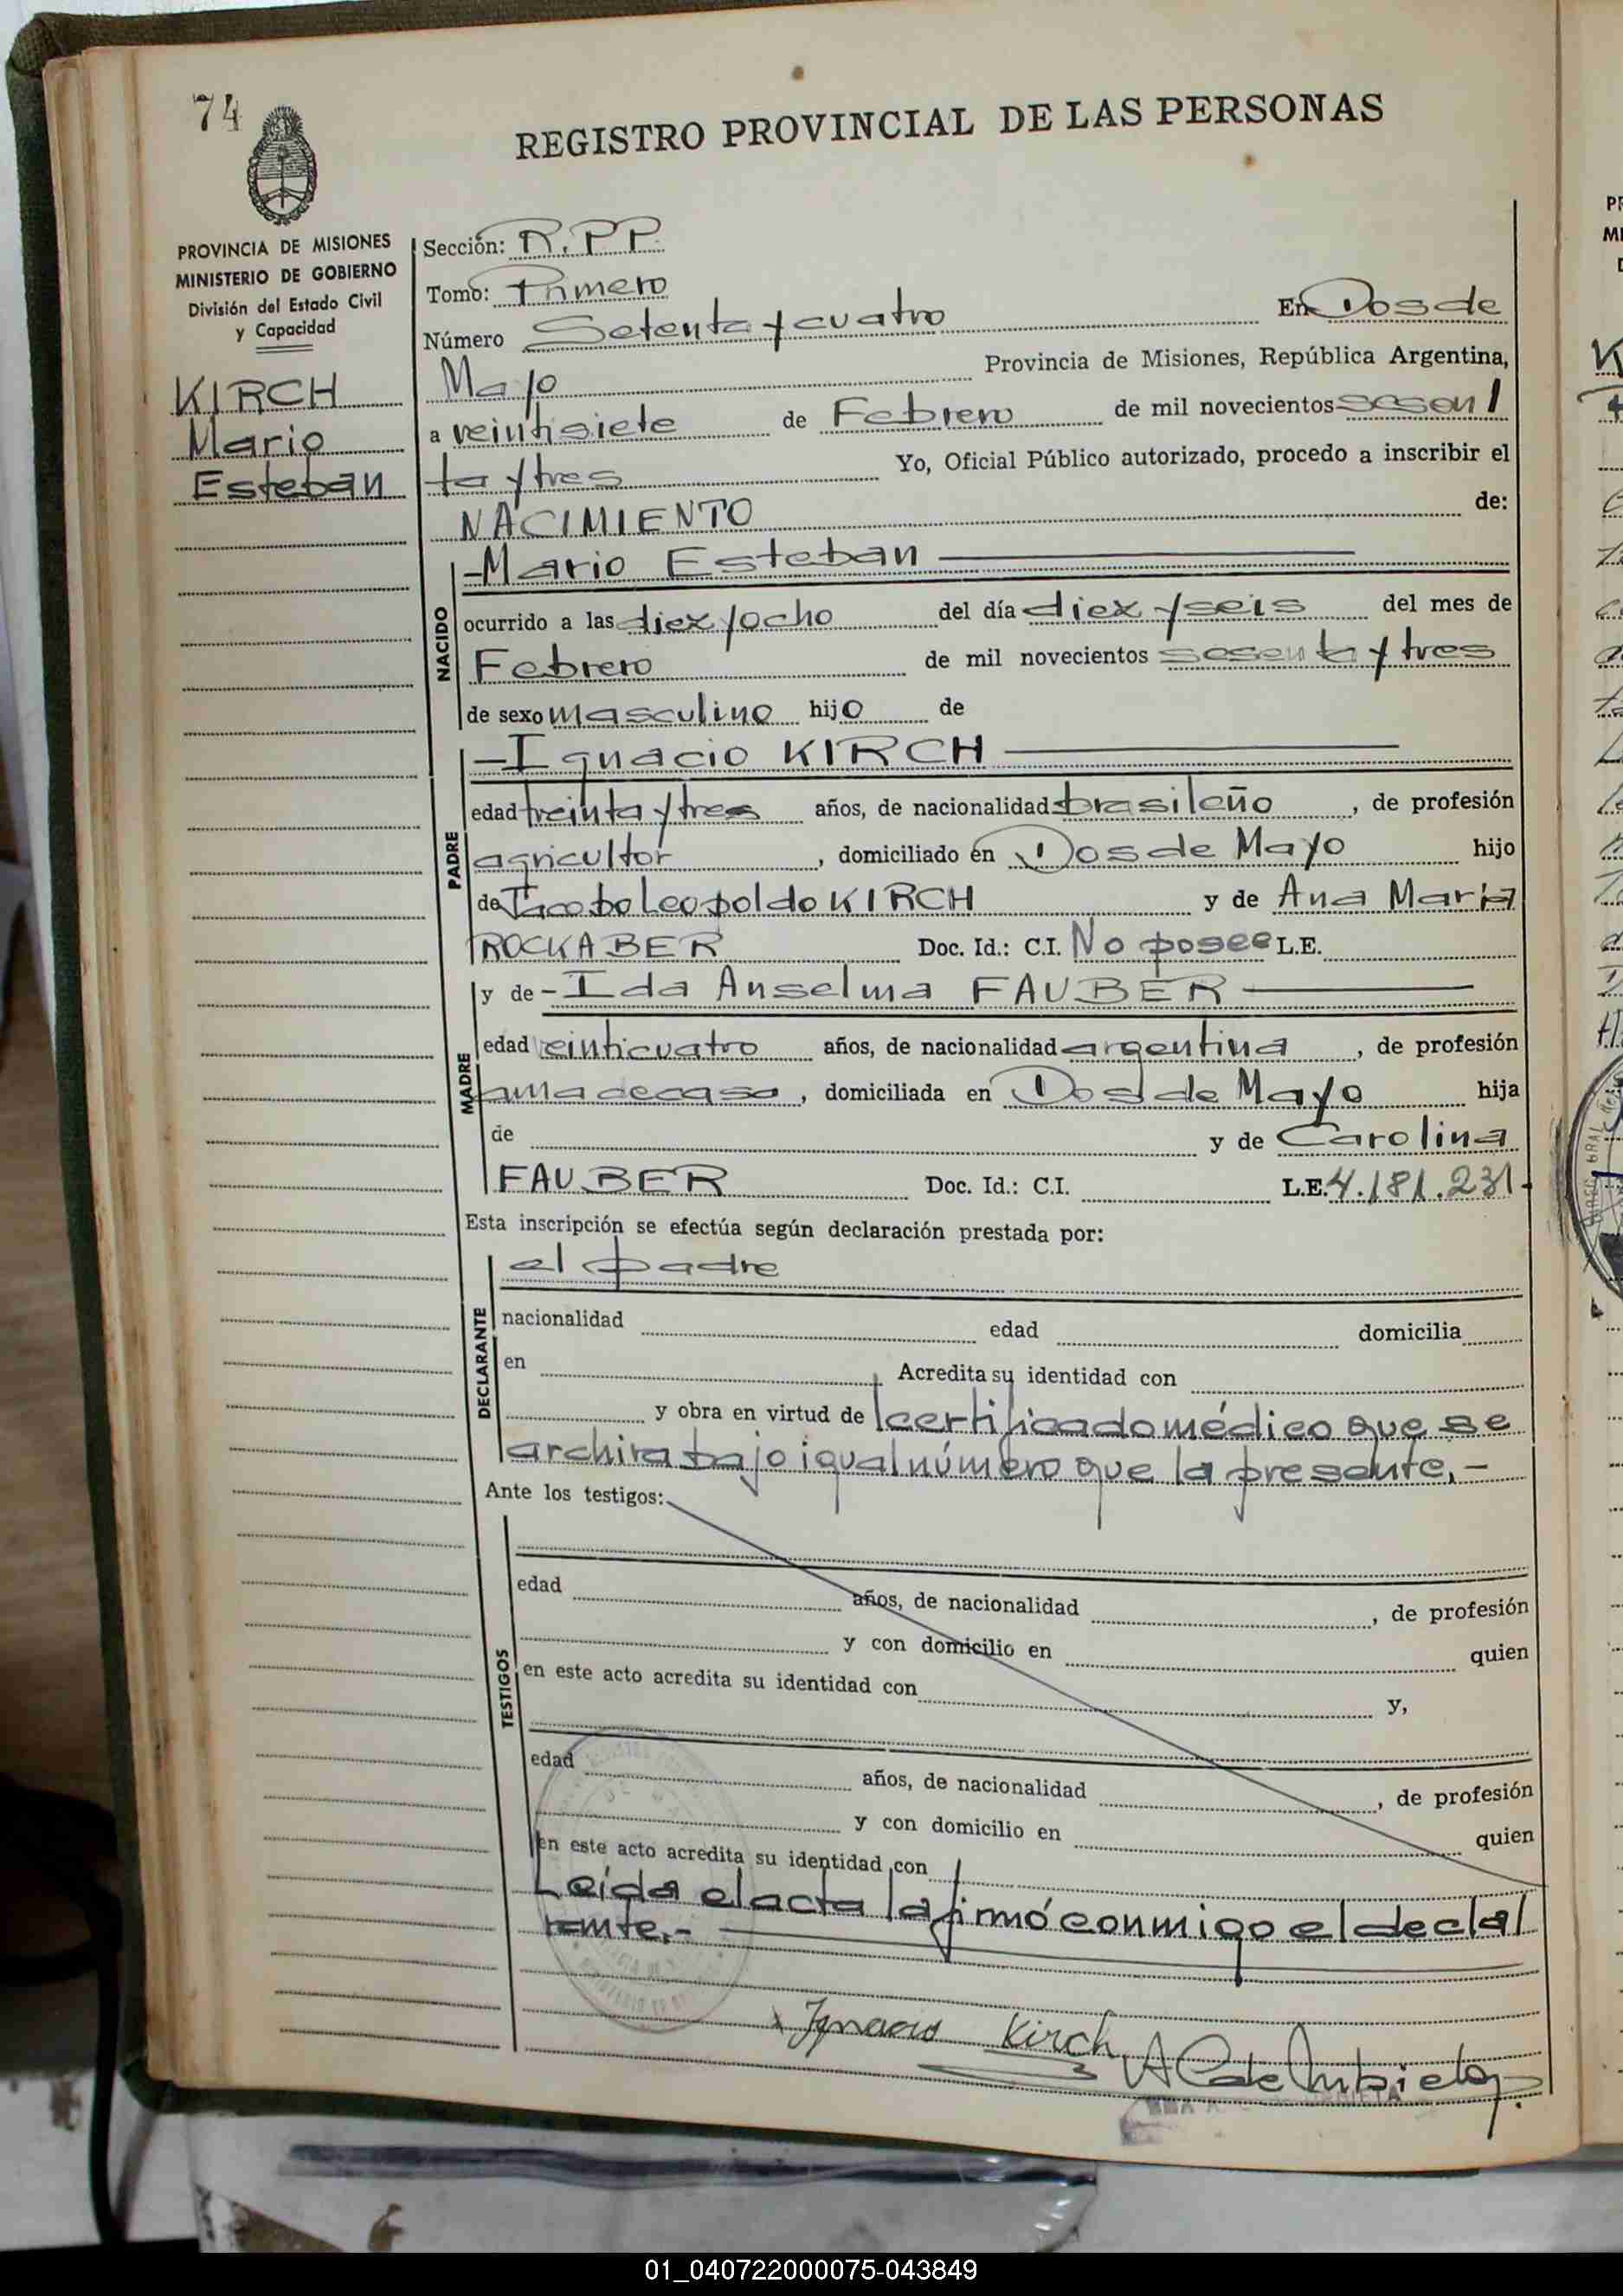 74
REGISTRO PROVINCIAL DE LAS PERSONAS
PROVINCIA DE MISIONES
MINISTERIO DE GOBIERNO
División del Estado Civil
y Capacidad
KIRCH
Mario
Esteban
Sección: R.P.P.
Tomo: Primero
Número Setenta y cuatro En Dos de
Mayo Provincia de Misiones, República Argentina,
a veintisiete de Febrero de mil novecientos sesen
ta y tres Yo, Oficial Público autorizado, procedo a inscribir el
NACIMIENTO de:
-Mario Esteban
NACIDO
ocurrido a las diez y ocho del día diez y seis del mes de
Febrero de mil novecientos sesenta y tres
de sexo masculino hijo de
-Ignacio KIRCH
PADRE
edad treinta y tres años, de nacionalidad brasileño, de profesión
agricultor, domiciliado en Dos de Mayo hijo
de Jacobo Leopoldo KIRCH y de Ana María
ROCKABER Doc. Id.: C.I. No posee L.E.
y de -Ida Anselma FAUBER
MADRE
edad veinticuatro años, de nacionalidad argentina, de profesión
ama de casa, domiciliada en Dos de Mayo hija
de y de Carolina
FAUBER Doc. Id.: C.I. L.E. 4.181.231.
Esta inscripción se efectúa según declaración prestada por:
el padre
DECLARANTE
nacionalidad edad domicilia
en Acredita su identidad con
y obra en virtud de certificado médico que se
archiva bajo igual número que la presente.-
Ante los testigos:
TESTIGOS
edad años, de nacionalidad , de profesión
y con domicilio en quien
en este acto acredita su identidad con y,
edad años, de nacionalidad , de profesión
y con domicilio en quien
en este acto acredita su identidad con
Leída el acta la firmó conmigo el decla
rante.-
Ignacio Kirch
01_040722000075-043849